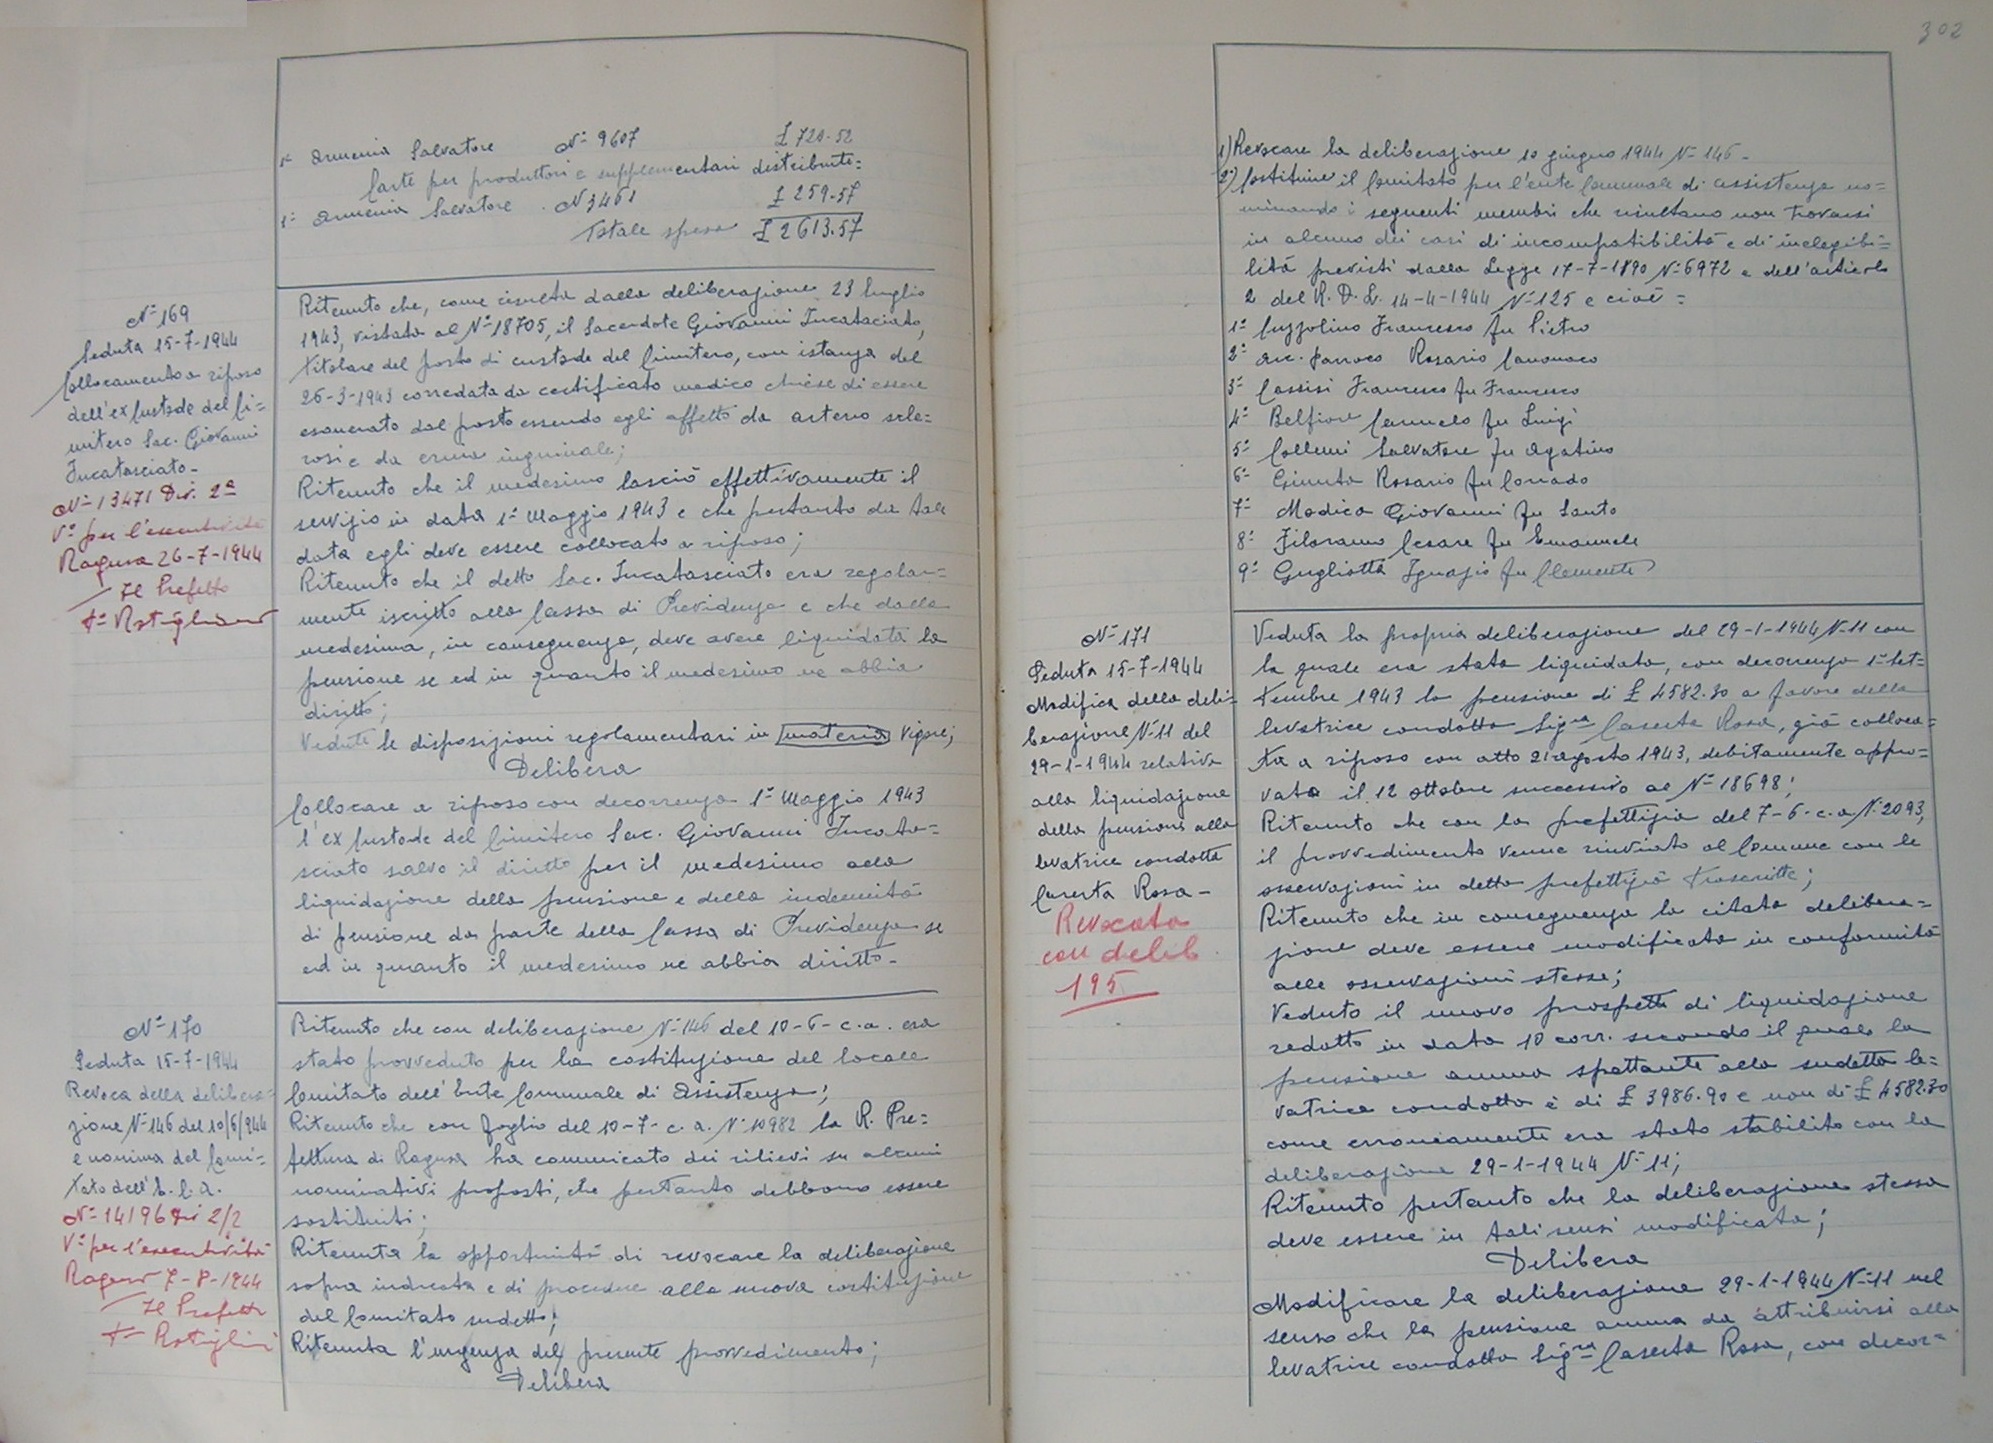 302
1º Armenia Salvatore Nº 9607 £ 720.52
Carte per produttori e supplementari distribuite=
1º Armenia Salvatore Nº 3461 £ 259.57
Totale spesa £ 2613.57
Nº 169
Seduta 15-7-1944
Collocamento a riposo
dell'ex custode del Ci=
mitero Sac. Giovanni
Incatasciato-
Nº 13471 Div. 2ª
Vº per l'esecutività
Ragusa 26-7-1944
Il Prefetto
Ritenuto che, come risulta dalla deliberazione 23 luglio
1943, vistata al Nº 18705, il Sacerdote Giovanni Incatasciato,
titolare del posto di custode del Cimitero, con istanza del
26-3-1943 corredata da certificato medico chiese di essere
esonerato dal posto essendo egli affetto da arterio scle=
rosi e da ernia inguinale;
Ritenuto che il medesimo lasciò effettivamente il
servizio in data 1º Maggio 1943 e che pertanto da tale
data egli deve essere collocato a riposo;
Ritenuto che il detto Sac. Incatasciato era regolar=
mente iscritto alla Cassa di Previdenza e che dalla
medesima, in conseguenza, deve avere liquidata la
pensione se ed in quanto il medesimo ne abbia
diritto;
Vedute le disposizioni regolamentari in materia vigore;
Delibera
Collocare a riposo con decorrenza 1º Maggio 1943
l'ex Custode del Cimitero Sac. Giovanni Incata=
sciato salvo il diritto per il medesimo alla
liquidazione della pensione e della indennità
di pensione da parte della Cassa di Previdenza se
ed in quanto il medesimo ne abbia diritto-
Nº 170
Seduta 15-7-1944
Revoca della delibera=
zione Nº 146 del 10/6/944
e nomina del Comi=
tato dell'E.C.A.
Nº 14196 Div 2/2
Vº per l'esecutività
Ragusa 7-8-1944
Il Prefetto
Ritenuto che con deliberazione Nº 146 del 10-6-c.a. era
stato provveduto per la costituzione del locale
Comitato dell'Ente Comunale di Assistenza;
Ritenuto che con foglio del 10-7-c.a. Nº 10982 la R. Pre=
fettura di Ragusa ha comunicato dei rilievi su alcuni
nominativi proposti, che pertanto debbono essere
sostituiti;
Ritenuta la opportunità di revocare la deliberazione
sopra indicata e di procedere alla nuova costituzione
del Comitato sudetto;
Ritenuta l'urgenza del presente provvedimento;
Delibera
1) Revocare la deliberazione 10 giugno 1944 Nº 146-
2) Costituire il Comitato per l'ente Comunale di assistenza no=
minando i seguenti membri che risultano non trovarsi
in alcuno dei casi di incompatibilità e di inelegibi=
lità previsti dalla Legge 17-7-1890 Nº 6972 e dell'articolo
2 del R.D.L. 14-4-1944 Nº 125 e cioè=
1º Cuzzolino Francesco fu Pietro
2º Arc. parroco Rosario Canonaco
3º Cassisi Francesco fu Francesco
4º Belfiore Carmelo fu Luigi
5º Collemi Salvatore fu Agatino
6º Giunta Rosario fu Corrado
7º Modica Giovanni fu Santo
8º Filoramo Cesare fu Emanuele
9º Gugliotta Ignazio fu Clemente
Nº 171
Seduta 15-7-1944
Modifica della deli=
berazione Nº 11 del
29-1-1944 relativa
alla liquidazione
della pensione alla
levatrice condotta
Caserta Rosa-
Revocata
con delib
195
Veduta la propria deliberazione del 29-1-1944 Nº 11 con
la quale era stata liquidata, con decorrenza 1º Set=
tembre 1943 la pensione di £ 4582.30 a favore della
levatrice condotta Sigra Caserta Rosa, già colloca=
ta a riposo con atto 21 agosto 1943, debitamente appro=
vata il 12 ottobre successivo al Nº 18698;
Ritenuto che con la prefettizia del 7-6-c.a Nº 2093,
il provvedimento venne rinviato al Comune con le
osservazioni in detta prefettizia trascritte;
Ritenuto che in conseguenza la citata delibera=
zione deve essere modificata in conformità
alle osservazioni stesse;
Veduto il nuovo prospetto di liquidazione
redatto in data 10 corr. secondo il quale la
pensione annua spettante alla sudetta le=
vatrice condotta è di £ 3986.90 e non di £ 4582.30
come erroneamente era stato stabilito con la
deliberazione 29-1-1944 Nº 11;
Ritenuto pertanto che la deliberazione stessa
deve essere in tali sensi modificata;
Delibera
Modificare la deliberazione 29-1-1944 Nº 11 nel
senso che la pensione annua da attribuirsi alla
levatrice condotta Sigra Caserta Rosa, con decor=